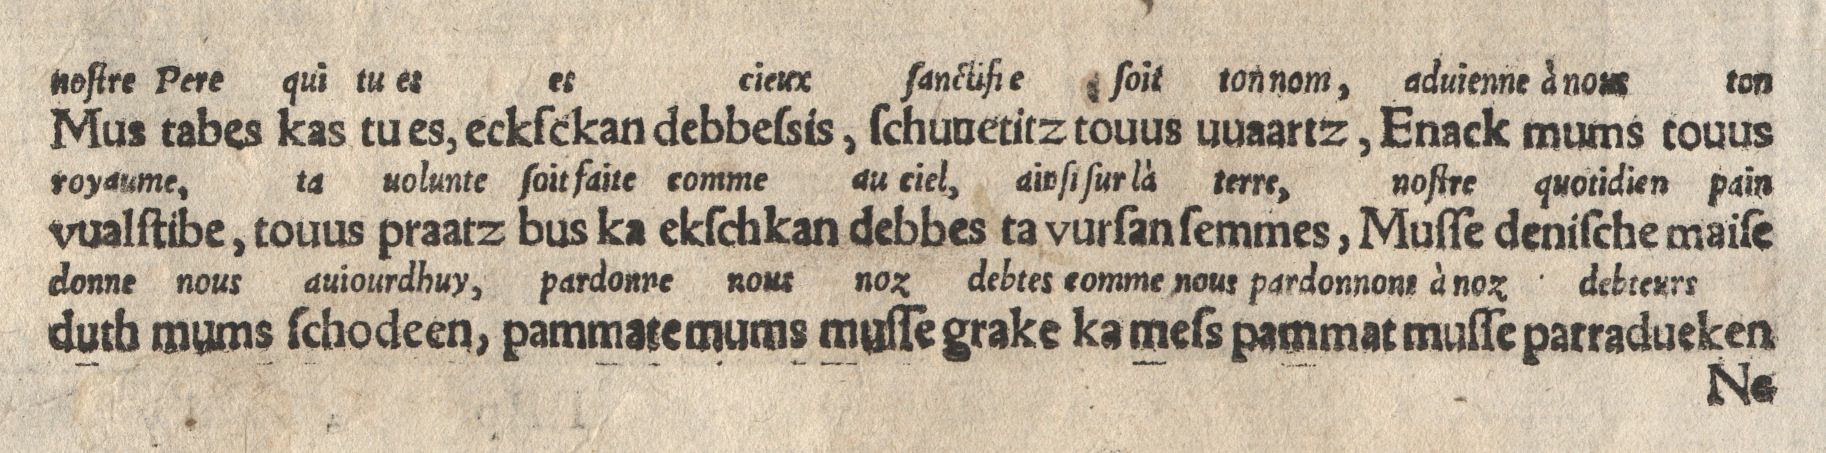 noſtre Pere qui tu es es cieux ſanctifie ſoit ton nom, aduienne à nous ton
Mus tabes kas tu es, eckſckan debbeſsis, ſchuuetitz touus uuaartz, Enack mums touus
royaume, ta uolunte ſoit faite comme au ciel, ainſi ſur là terre, noſtre quotidien pain
vualſtibe, touus praatz bus ka ekſchkan debbes ta vurſan ſemmes, Muſſe deniſche maiſe
donne nous auiourdhuy, pardonne nous noz debtes comme nous pardonnons à noz debteurs
duth mums ſchodeen, pammate mums muſſe grake ka meſs pammat muſſe parradueken
Ne